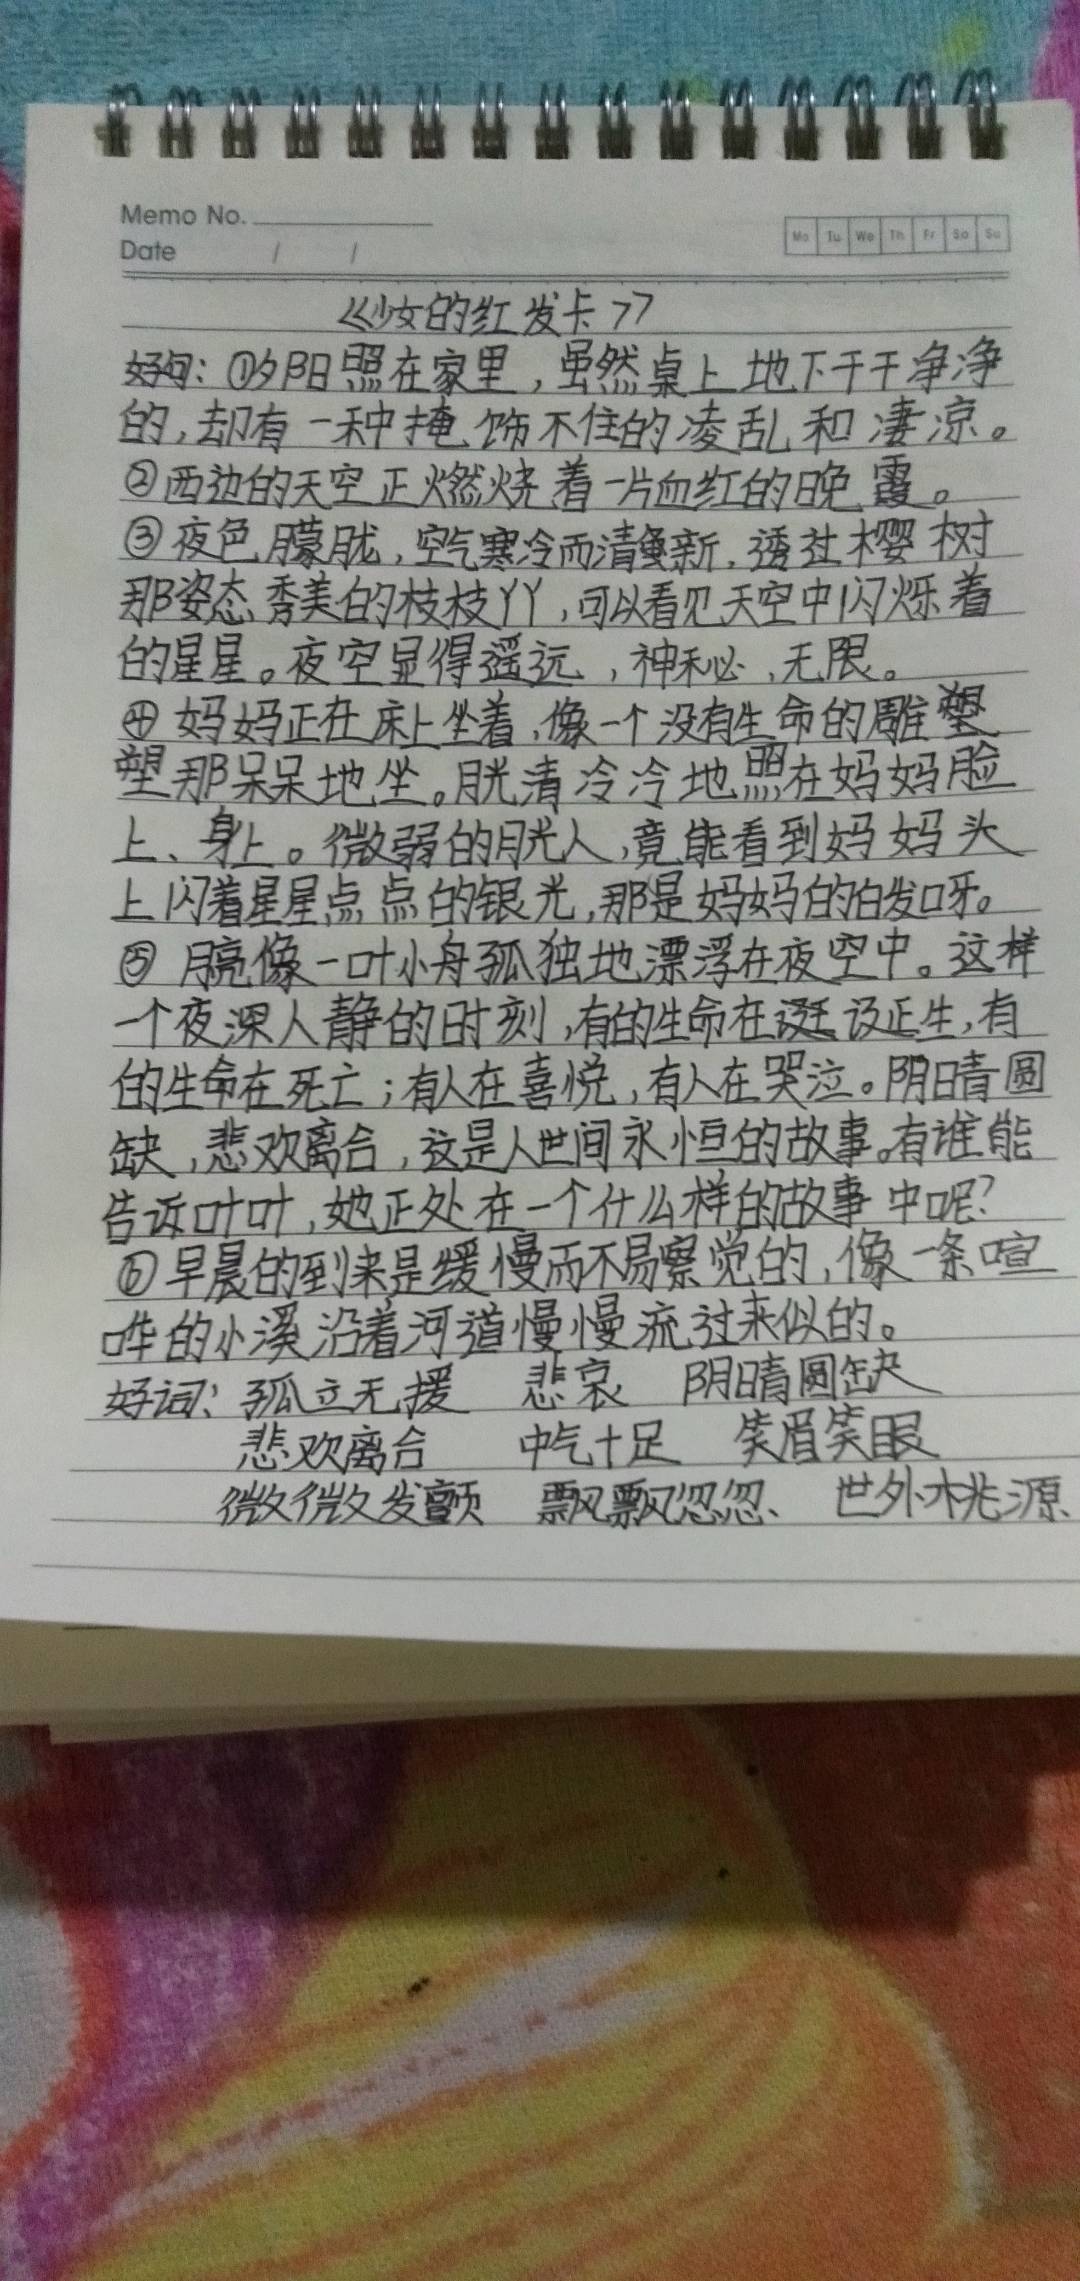 Memo No.
Date / /
Mo Tu We Th Fr Sa Su
《少女的红发卡》
好句：①夕阳照在家里，虽然桌上地下干干净净
的，却有一种掩饰不住的凌乱和凄凉。
②西边的天空正燃烧着一片血红的晚霞。
③夜色朦胧，空气寒冷而清新，透过樱树
那姿态秀美的枝枝丫丫，可以看见天空中闪烁着
的星星。夜空显得遥远，神秘，无限。
④妈妈正在床上坐着，像一个没有生命的雕
塑那呆呆地坐。月光清冷冷地照在妈妈脸
上、身上。微弱的月光人，竟能看到妈妈头
上闪着星星点点的银光，那是妈妈的白发呀。
⑤月亮像一叶小舟孤独地漂浮在夜空中。这样
一个夜深人静的时刻，有的生命在诞生，有
的生命在死亡；有人在喜悦，有人在哭泣。阴晴圆
缺，悲欢离合，这是人世间永恒的故事。有谁能
告诉叶叶，她正处在一个什么样的故事中呢？
⑥早晨的到来是缓慢而不易察觉的，像一条喧
哗的小溪沿着河道慢慢流过来似的。
好词：孤立无援 悲哀 阴晴圆缺
悲欢离合 中气十足 笑眉笑眼
微微发颤 飘飘忽忽 世外桃源